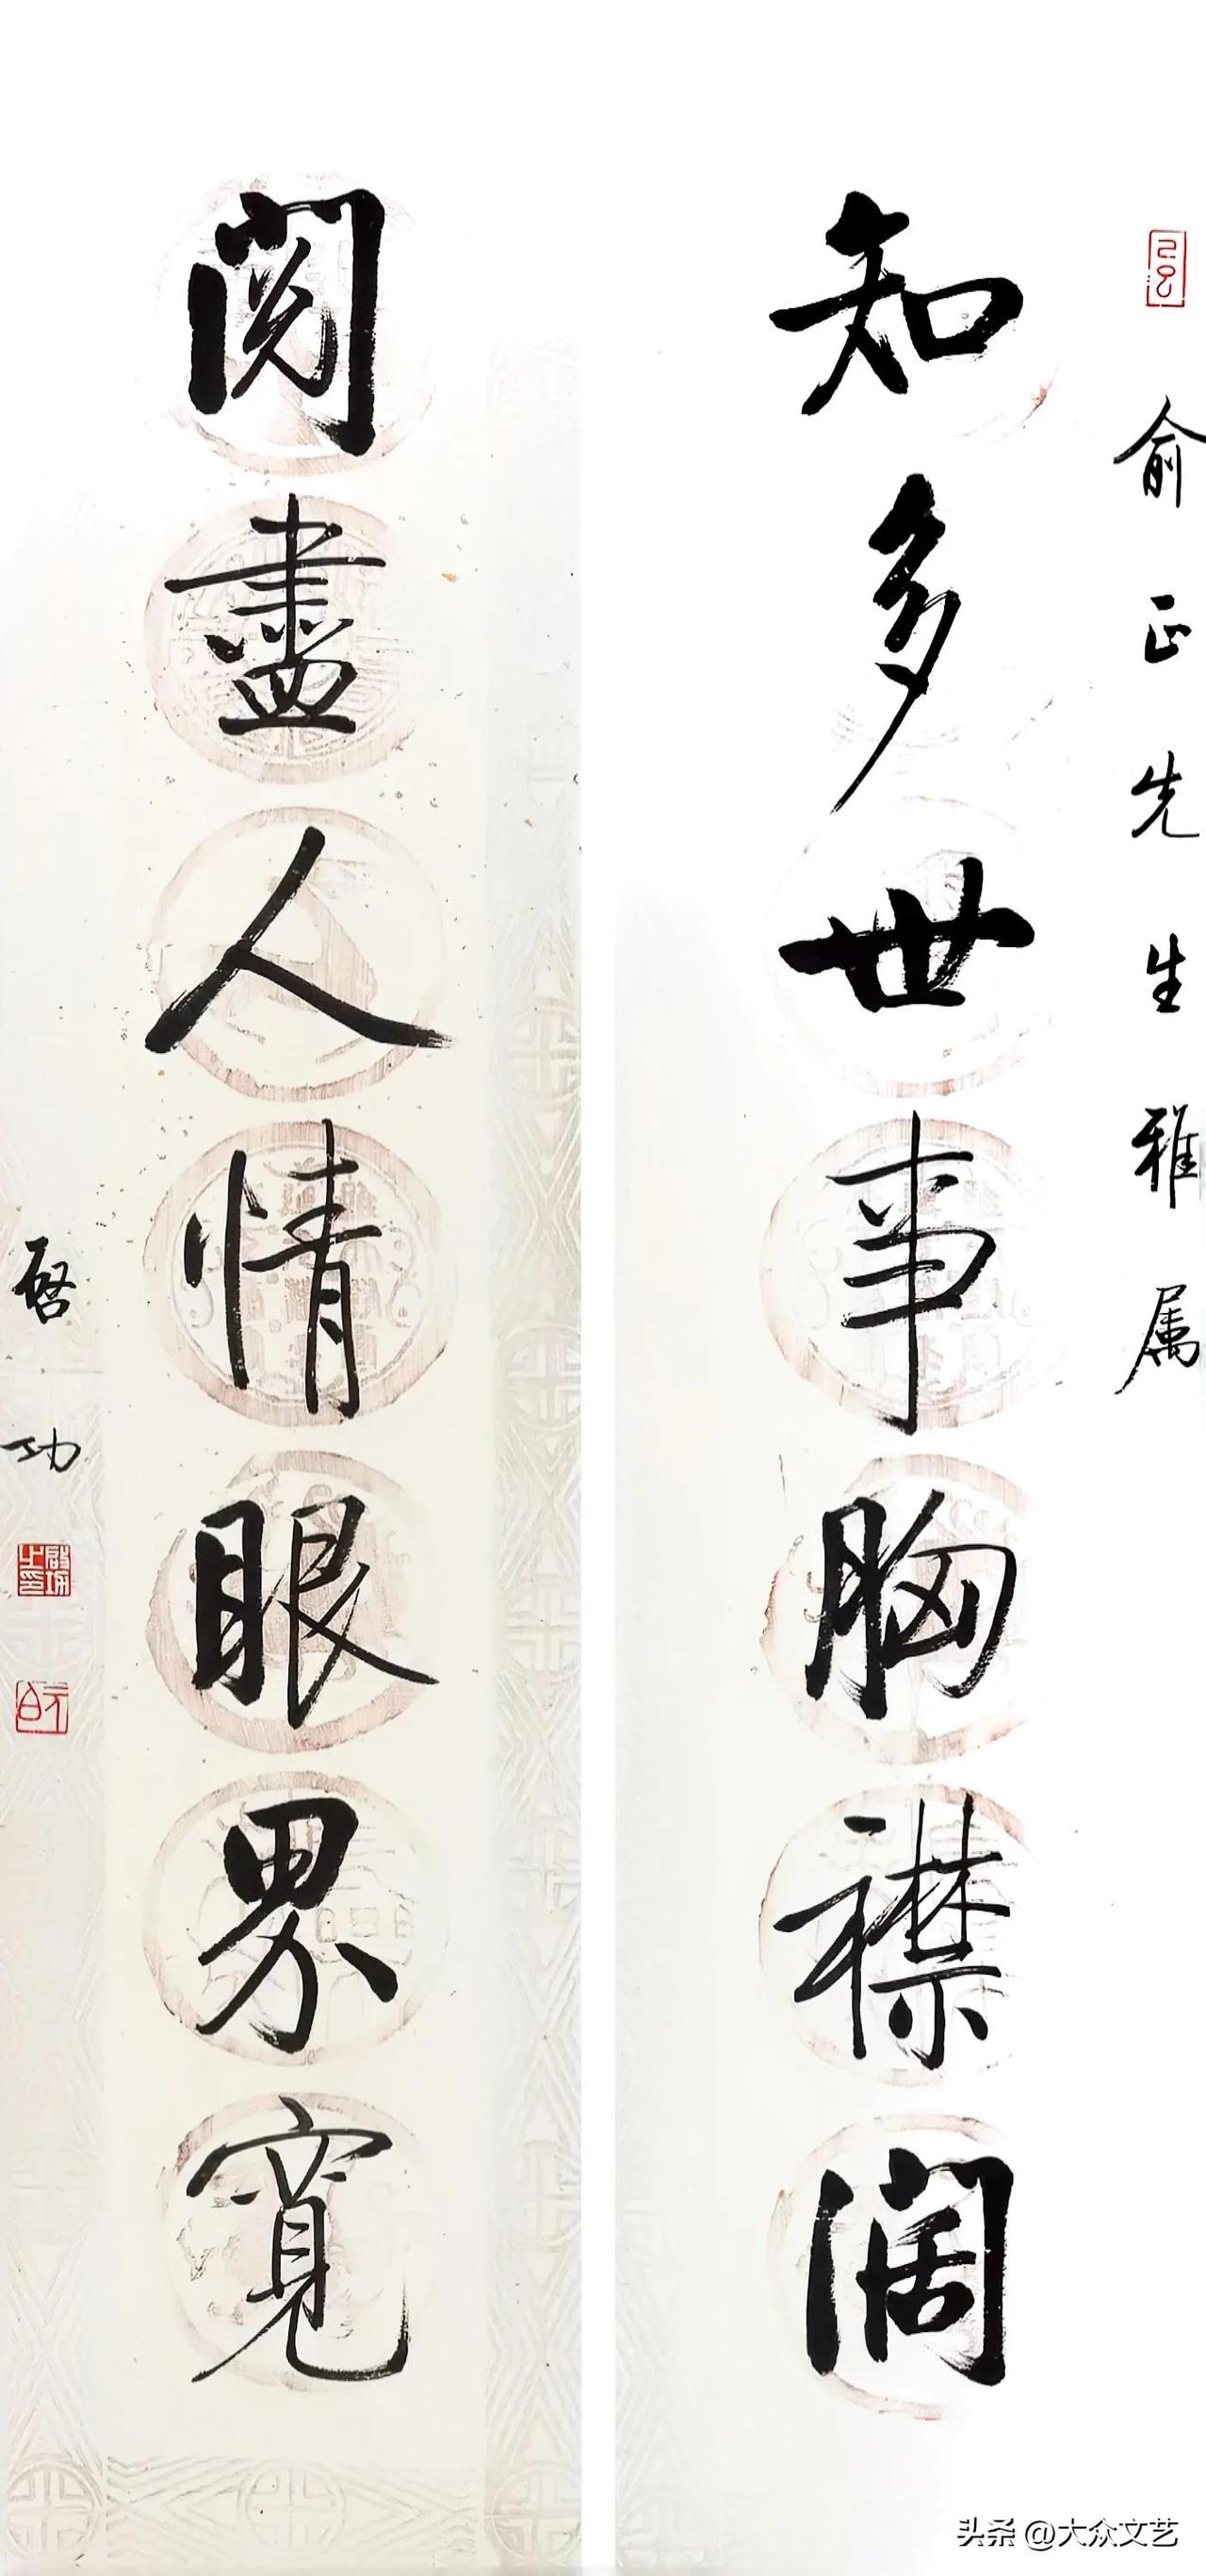 俞正先生雅属
知多世事胸襟阔
阅盡人情眼界寬
启功
头条 @大众文艺